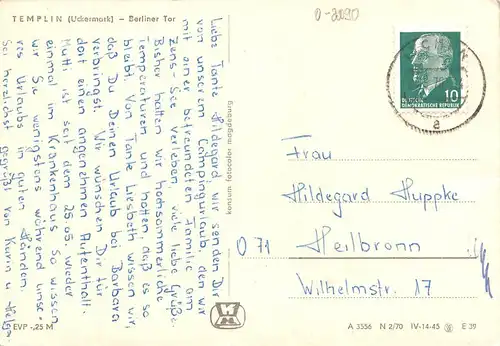 TEMPLIN (Uckermark) — Berliner Tor
0-2090
DEUTSCHE
DEMOKRATISCHE REPUBLIK
10
a
Liebe Tante Hildegard wir senden Dir
von unserem Campingurlaub, den wir
mit einer befreundeten Familie am
Zens-See verleben, viele liebe Grüße.
Bisher halten wir hochsommerliche
Temperaturen und hoffen, daß es so
bleibt. Von Tante Liesbeth wissen wir,
daß Du Deinen Urlaub bei Barbara
verbringst. Wir wünschen Dir für
dort einen angenehmen Aufenthalt.
Mutti ist seit dem 25.05. wieder
einmal im Krankenhaus. So wissen
wir Sie wenigstens während unse-
res Urlaubs in guten Händen.
Sei herzlichst gegrüßt von Karin u.
konsum fotocolor magdeburg
Frau
Hildegard Huppke
071 Heilbronn
Wilhelmstr. 17
EVP -,25 M
A 3556 N 2/70 IV-14-45 E 39